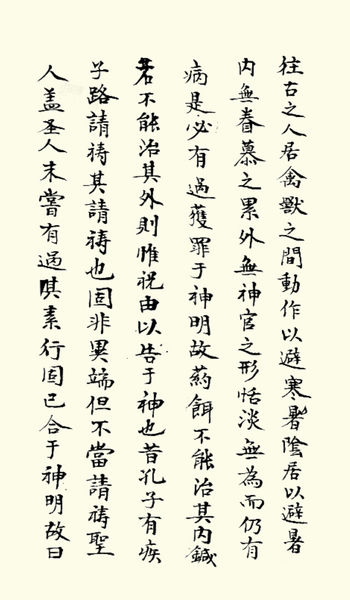 往古之人居禽獸之間動作以避寒暑陰居以避暑
内無眷慕之累外無神官之形恬淡無為而仍有
病是必有過獲罪于神明故葯餌不能治其内鍼
若不能治其外則惟祝由以告于神也昔孔子有疾
子路請祷其請祷也固非異端但不當請祷聖
人盖圣人未嘗有過其素行固已合于神明故曰